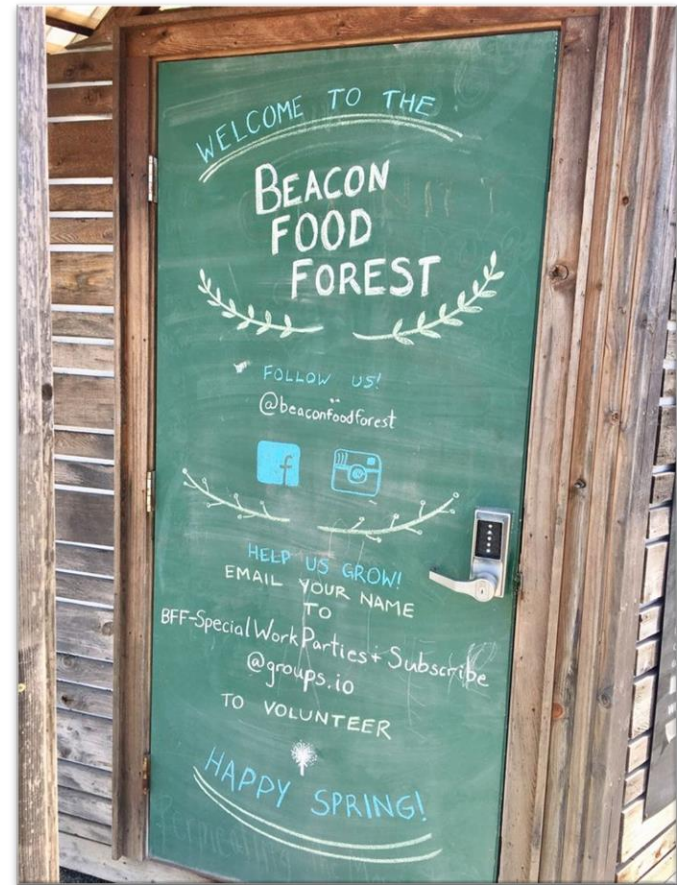 WELCOME TO THE
BEACON
FOOD
FOREST
FOLLOW US!
@beaconfoodforest
f
HELP US GROW!
EMAIL YOUR NAME
TO
BFF-SpecialWorkParties+Subscribe
@groups.io
TO VOLUNTEER
HAPPY SPRING!